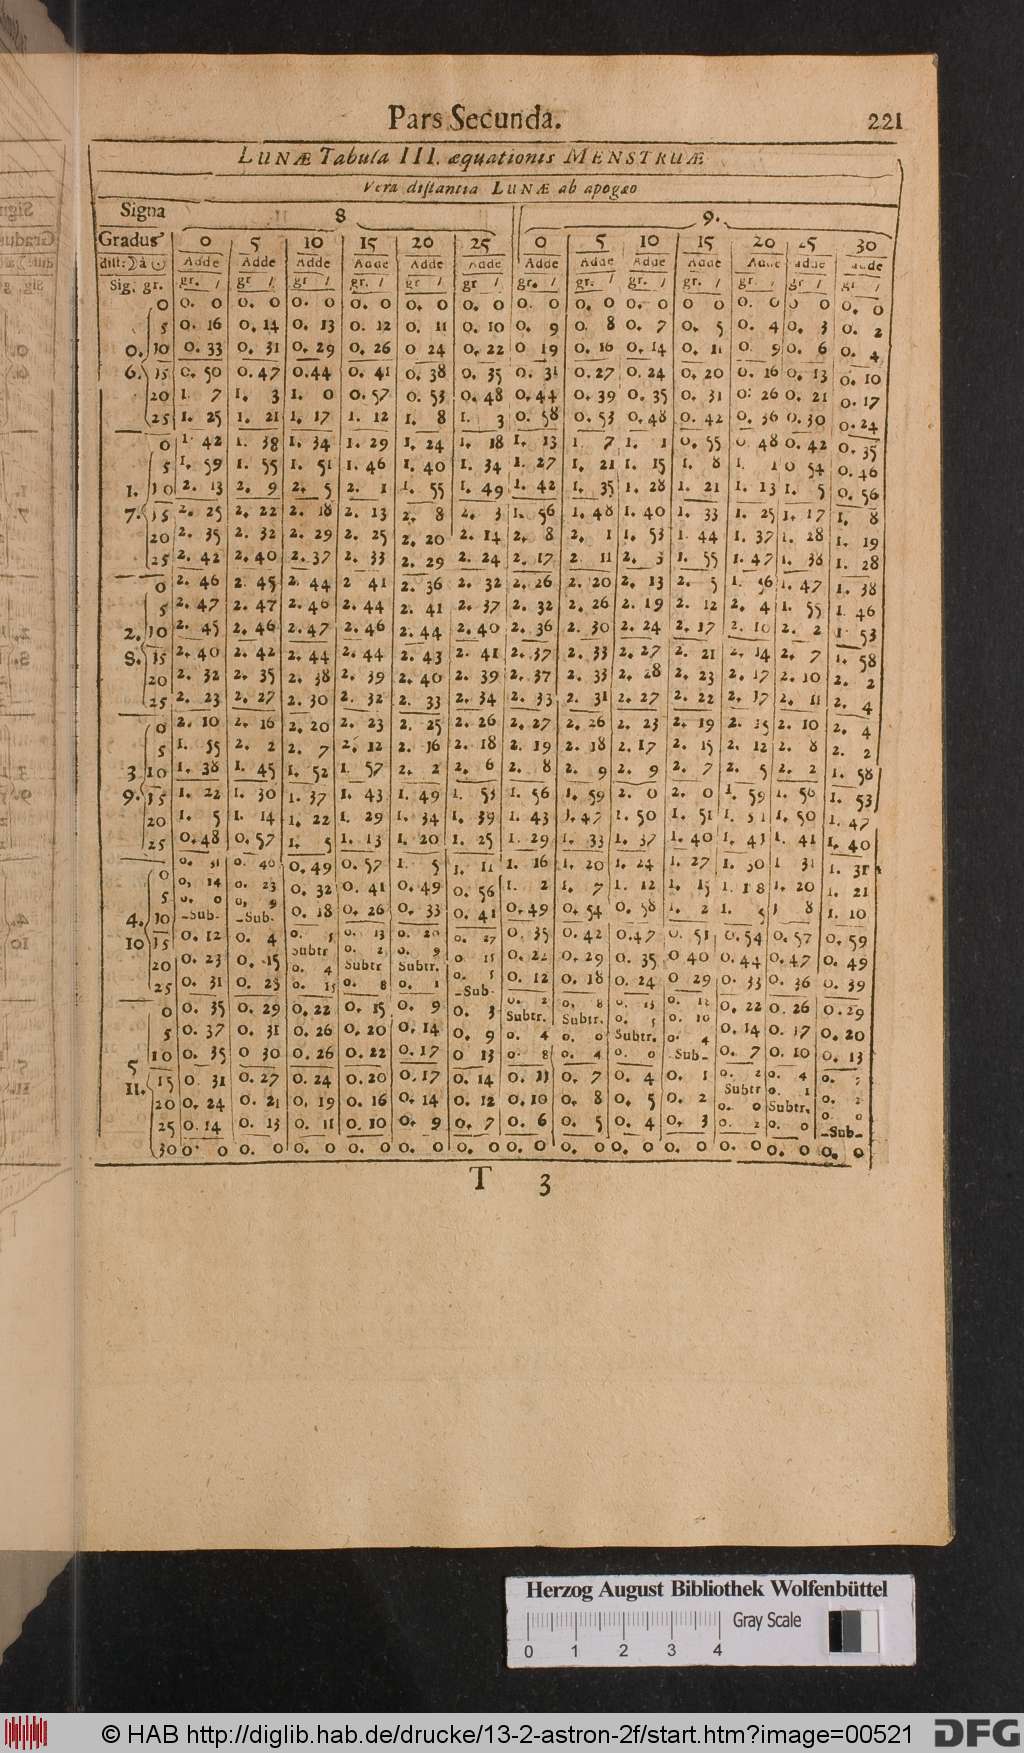 Pars Secunda. 221
LUNÆ Tabula III. æquationis MENSTRUÆ
Vera distantia LUNÆ ab apogæo
Signa 8 9.
Gradus 0 5 10 15 20 25 0 5 10 15 20 25 30
dist: ☽ à ☉ Adde Adde Adde Adde Adde Adde Adde Adde Adde Adde Adde adde adde
Sig. gr. gr. / gr / gr / gr. / gr / gr / gr. / gr. / gr. / gr. / gr. / gr / gr /
0 0. 0 0. 0 0. 0 0. 0 0. 0 0. 0 0. 0 0. 0 0. 0 0. 0 0. 0 0 0 0. 0
5 0. 16 0. 14 0. 13 0. 12 0. 11 0. 10 0. 9 0. 8 0. 7 0. 5 0. 4 0. 3 0. 2
0. 10 0. 33 0. 31 0. 29 0. 26 0 24 0. 22 0 19 0. 16 0. 14 0. 11 0. 9 0. 6 0. 4
6. 15 0. 50 0. 47 0. 44 0. 41 0. 38 0. 35 0. 31 0. 27 0. 24 0. 20 0. 16 0. 13 0. 10
20 1. 7 1. 3 1. 0 0. 57 0. 53 0. 48 0. 44 0. 39 0. 35 0. 31 0. 26 0. 21 0. 17
25 1. 25 1. 21 1. 17 1. 12 1. 8 1. 3 0. 58 0. 53 0. 48 0. 42 0. 36 0. 30 0. 24
0 1. 42 1. 38 1. 34 1. 29 1. 24 1. 18 1. 13 1. 7 1. 1 0. 55 0. 48 0. 42 0. 35
5 1. 59 1. 55 1. 51 1. 46 1. 40 1. 34 1. 27 1. 21 1. 15 1. 8 1. 1 0 54 0. 46
1. 10 2. 13 2. 9 2. 5 2. 1 1. 55 1. 49 1. 42 1. 35 1. 28 1. 21 1. 13 1. 5 0. 56
7. 15 2. 25 2. 22 2. 18 2. 13 2. 8 2. 3 1. 56 1. 48 1. 40 1. 33 1. 25 1. 17 1. 8
20 2. 35 2. 32 2. 29 2. 25 2. 20 2. 14 2. 8 2. 1 1. 53 1. 44 1. 37 1. 28 1. 19
25 2. 42 2. 40 2. 37 2. 33 2. 29 2. 24 2. 17 2 11 2. 3 1. 55 1. 47 1. 38 1. 28
0 2. 46 2. 45 2. 44 2 41 2. 36 2. 32 2. 26 2. 20 2. 13 2. 5 1. 56 1. 47 1. 38
5 2. 47 2. 47 2. 46 2. 44 2. 41 2. 37 2. 32 2. 26 2. 19 2. 12 2. 4 1. 55 1. 46
2. 10 2. 45 2. 46 2. 47 2. 46 2. 44 2. 40 2. 36 2. 30 2. 24 2. 17 2. 10 2. 2 1. 53
8. 15 2. 40 2. 42 2. 44 2. 44 2. 43 2. 41 2. 37 2. 33 2. 27 2. 21 2. 14 2. 7 1. 58
20 2. 32 2. 35 2. 38 2. 39 2. 40 2. 39 2. 37 2. 33 2. 28 2. 23 2. 17 2. 10 2. 2
25 2. 23 2. 27 2. 30 2. 32 2. 33 2. 34 2. 33 2. 31 2. 27 2. 22 2. 17 2. 11 2. 4
0 2. 10 2. 16 2. 20 2. 23 2. 25 2. 26 2. 27 2. 26 2. 23 2. 19 2. 15 2. 10 2. 4
5 1. 55 2. 2 2. 7 2. 12 2. 16 2. 18 2. 19 2. 18 2. 17 2. 15 2. 12 2. 8 2. 2
3 10 1. 38 1. 45 1. 52 1. 57 2. 2 2. 6 2. 8 2. 9 2. 9 2. 7 2. 5 2. 2 1. 58
9. 15 1. 22 1. 30 1. 37 1. 43 1. 49 1. 53 1. 56 1. 59 2. 0 2. 0 1. 59 1. 56 1. 53
20 1. 5 1. 14 1. 22 1. 29 1. 34 1. 39 1. 43 1. 47 1. 50 1. 51 1. 51 1. 50 1. 47
25 0. 48 0. 57 1. 5 1. 13 1. 20 1. 25 1. 29 1. 33 1. 37 1. 40 1. 41 1. 41 1. 40
0 0. 31 0. 40 0. 49 0. 57 1. 5 1. 11 1. 16 1. 20 1. 24 1. 27 1. 30 1 31 1. 31
5 0. 14 0. 23 0. 32 0. 41 0. 49 0. 56 1. 2 1. 7 1. 12 1. 15 1. 18 1. 20 1. 21
4. 10 0. 0 -Sub- 0. 9 -Sub- 0. 18 0. 26 0. 33 0. 41 0. 49 0. 54 0. 58 1. 2 1. 5 1 8 1. 10
10 15 0. 12 0. 4 0. 1 Subtr 0. 13 0. 20 0. 27 0. 35 0. 42 0. 47 0. 51 0. 54 0. 57 0. 59
20 0. 23 0. 15 0. 4 0. 2 Subtr 0. 9 Subtr. 0. 15 0. 22 0. 29 0. 35 0 40 0. 44 0. 47 0. 49
25 0. 31 0. 23 0. 15 0. 8 0. 1 0. 5 -Sub- 0. 12 0. 18 0. 24 0 29 0. 33 0. 36 0. 39
0 0. 35 0. 29 0. 22 0. 15 0. 9 0. 3 0. 2 Subtr. 0. 8 Subtr. 0. 13 0. 18 0. 22 0. 26 0. 29
5 0. 37 0. 31 0. 26 0. 20 0. 14 0. 9 0. 4 0. 0 0. 5 Subtr. 0. 10 0. 14 0. 17 0. 20
10 0. 35 0 30 0. 26 0. 22 0. 17 0 13 0. 8 0. 4 0. 0 0. 4 -Sub- 0. 7 0. 10 0. 13
5
11. 15 0. 31 0. 27 0. 24 0. 20 0. 17 0. 14 0. 11 0. 7 0. 4 0. 1 0. 2 Subtr 0. 4 0. 7
20 0. 24 0. 21 0. 19 0. 16 0. 14 0. 12 0. 10 0. 8 0. 5 0. 2 0. 0 0. 1 Subtr. 0. 2
25 0. 14 0. 13 0. 11 0. 10 0. 9 0. 7 0. 6 0. 5 0. 4 0. 3 0. 2 0. 0 0. 0 -Sub-
30 0. 0 0. 0 0. 0 0. 0 0. 0 0. 0 0. 0 0. 0 0. 0 0. 0 0. 0 0. 0 0. 0
T 3
Herzog August Bibliothek Wolfenbüttel
Gray Scale
0 1 2 3 4
© HAB http://diglib.hab.de/drucke/13-2-astron-2f/start.htm?image=00521 DFG